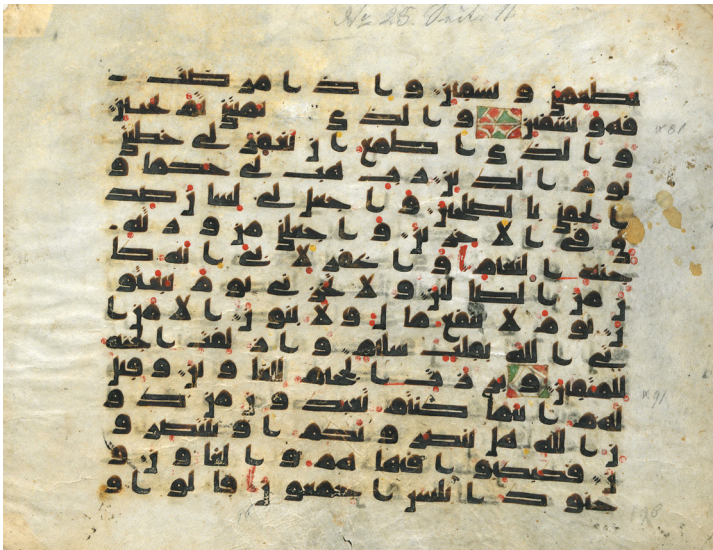 يطعمني و يسقين و ا ذ ا مر ضت
فهو يشفين و ا لذ ي يميتني ثم يحيين
و ا لذ ي ا طمع ا ن يغفر لي خطيتي
يو م ا لد ين ر ب هب لي حكما و
ا لحقني با لصلحين و ا جعل لي لسا ن صد
ق في ا لا خر ين و ا جعلني من و ر ثه
جنه ا لنعيم و ا غفر لا بي ا نه كا
ن من ا لضا لين و لا تخز ني يو م يبعثو
ن يو م لا ينفع ما ل و لا بنو ن ا لا من ا
تى ا لله بقلب سليم و ا ز لفت ا لجنه
للمتقين و بر ز ت ا لجحيم للغا و ين و قيل
لهم ا ينما كنتم تعبد و ن من د و
ن ا لله هل ينصر و نكم ا و ينتصر و
ن فكبكبو ا فيها هم و ا لغا و ن و
جنو د ا بليس ا جمعو ن قا لو ا و